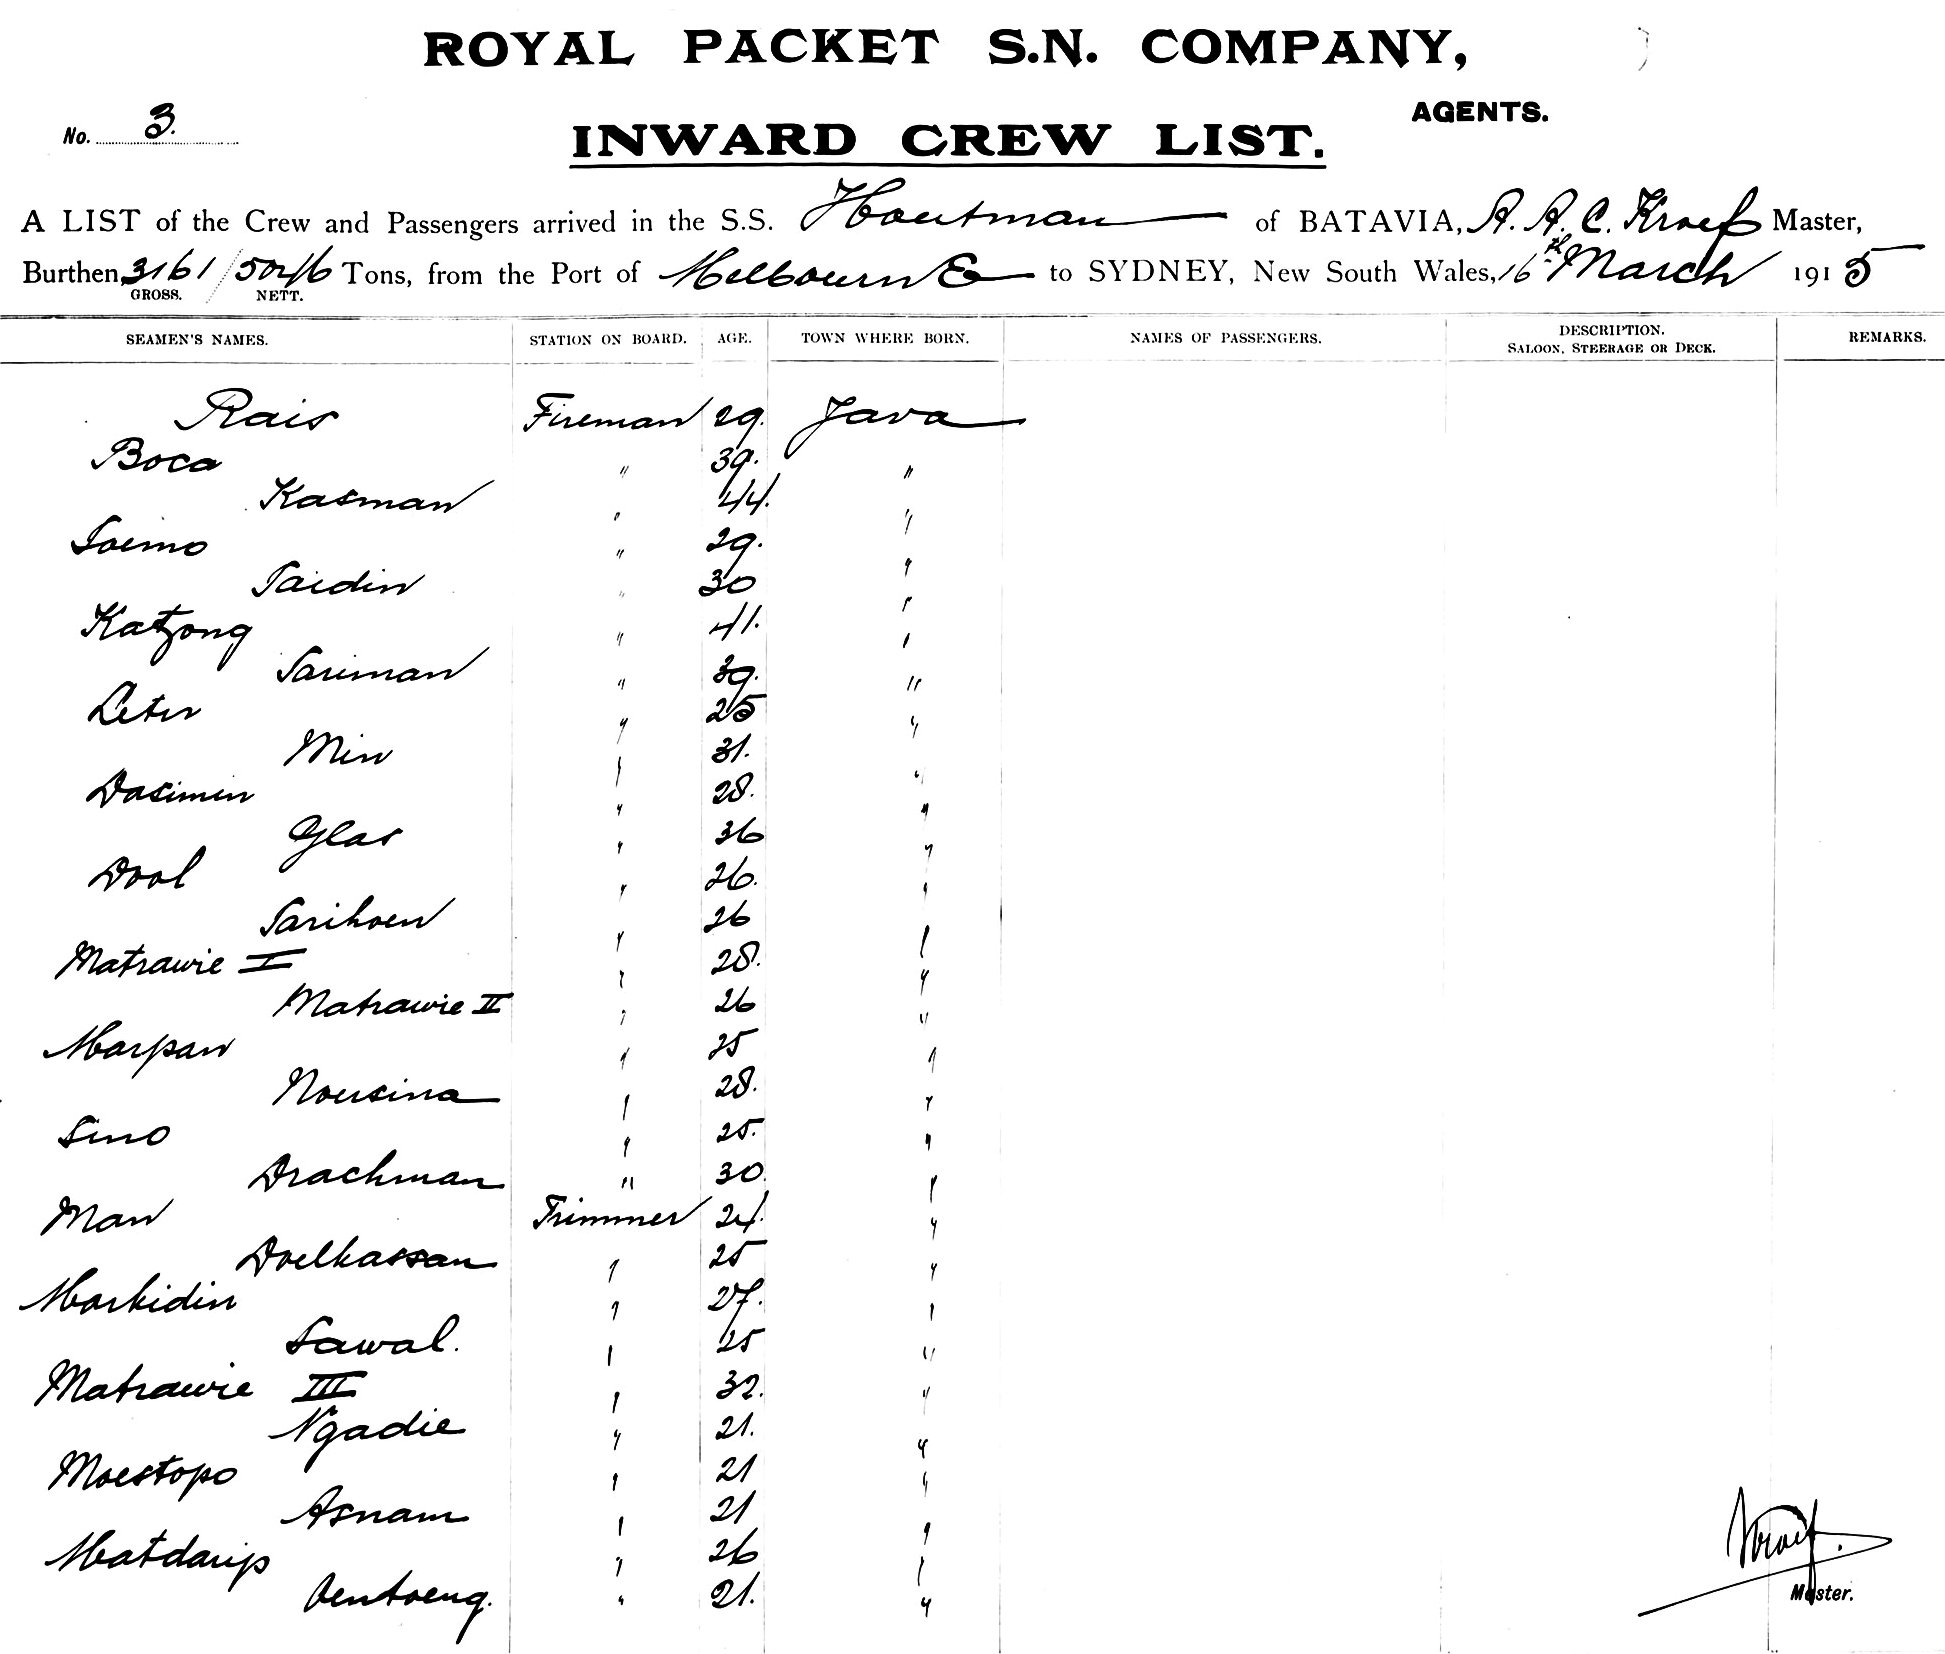 ROYAL PACKET S.N. COMPANY,
AGENTS.
No. 3.
INWARD CREW LIST.
A LIST of the Crew and Passengers arrived in the S.S. Houtman of BATAVIA, A. A. C. Kroef Master,
Burthen 3161 / 5046 Tons, from the Port of Melbourne to SYDNEY, New South Wales, 16th March 1915
GROSS. NETT.
SEAMEN'S NAMES. STATION ON BOARD. AGE. TOWN WHERE BORN. NAMES OF PASSENGERS. DESCRIPTION. SALOON, STEERAGE OR DECK. REMARKS.
Rais Fireman 29. Java
Boca " 39. "
Kasman " 44. "
Soemo " 29. "
Saidin " 30 "
Katjong " 41. "
Sariman " 39. "
Leter " 25 "
Min " 31. "
Dasimin " 28. "
Glas " 36 "
Dool " 26. "
Sarihoen " 26 "
Matrawie I " 28. "
Matrawie II " 26 "
Marpan " 25 "
Noersina " 28. "
Sino " 25. "
Drachman " 30 "
Man Trimmer 24. "
Doelhassan " 25 "
Markidin " 27. "
Sawal. " 25 "
Matrawie III " 32. "
Ngadie " 21. "
Moestopo " 21 "
Asnam " 21 "
Matdarip " 26 "
Oentoeng. " 21. "
Kroef.
Master.